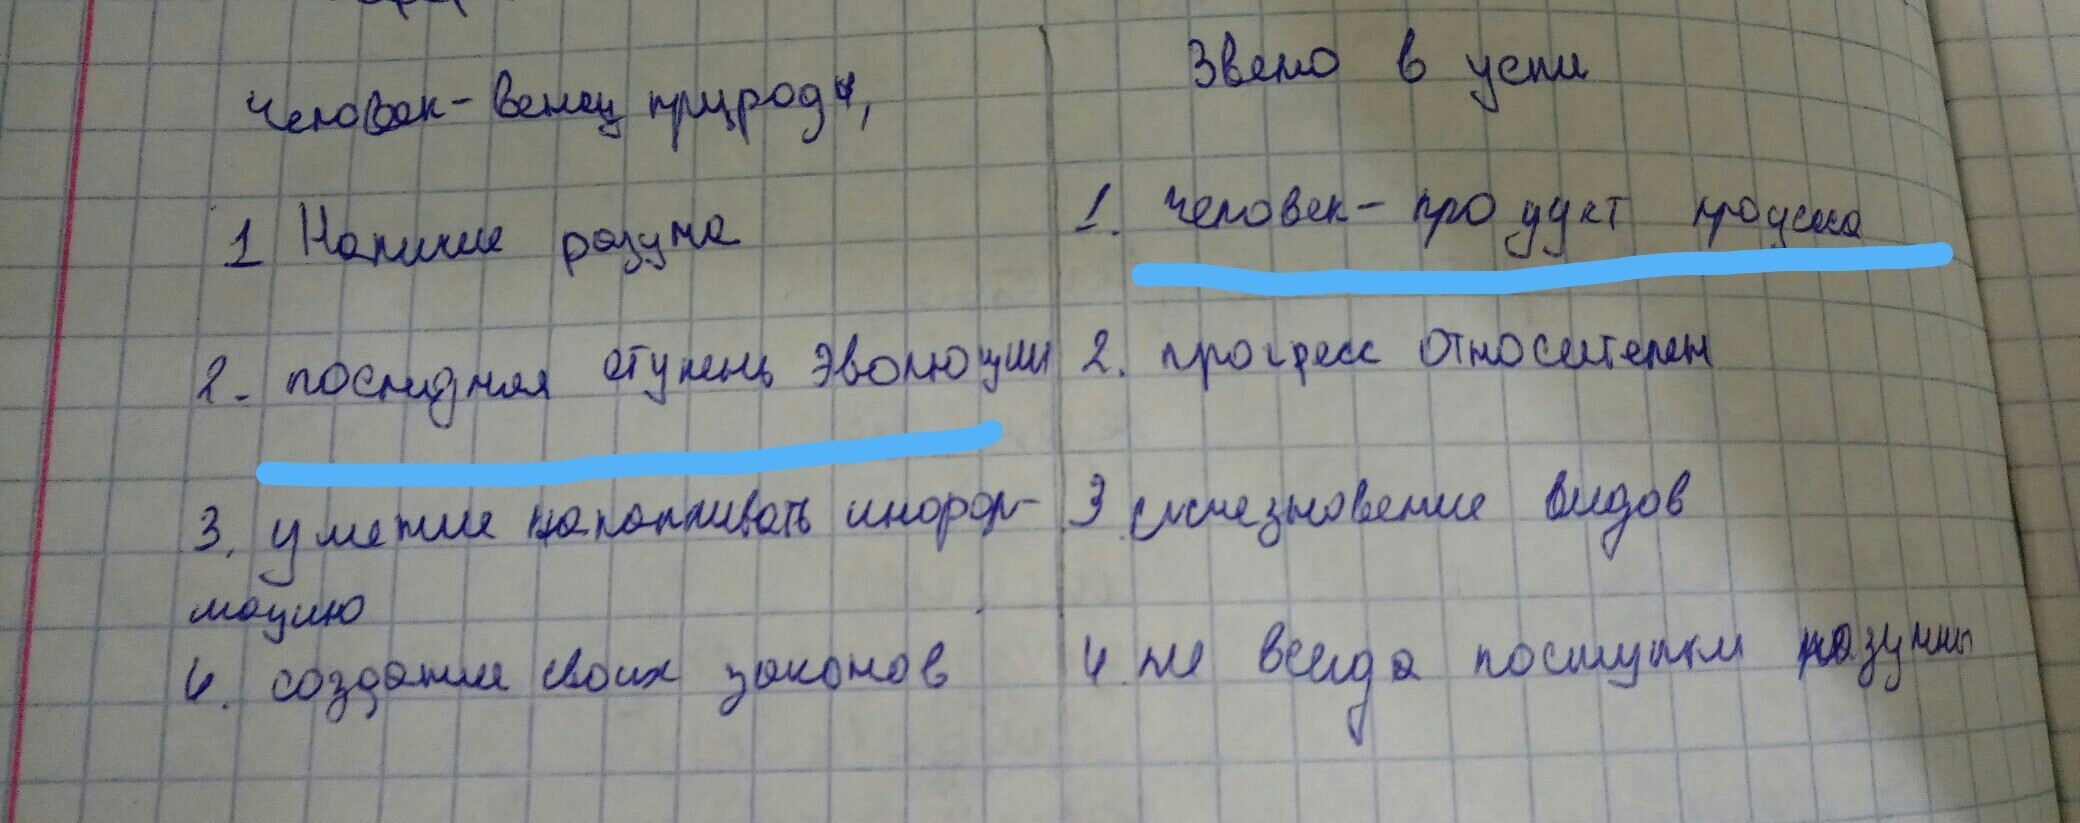 Человек - венец природы,
1 Наличие разума
2. последняя ступень эволюции
3. умение накапливать инфор-
мацию
4. создание своих законов
Звено в цепи
1. Человек - продукт процесса
2. прогресс относителен
3 исчезновение видов
4. не всегда поступки разумны